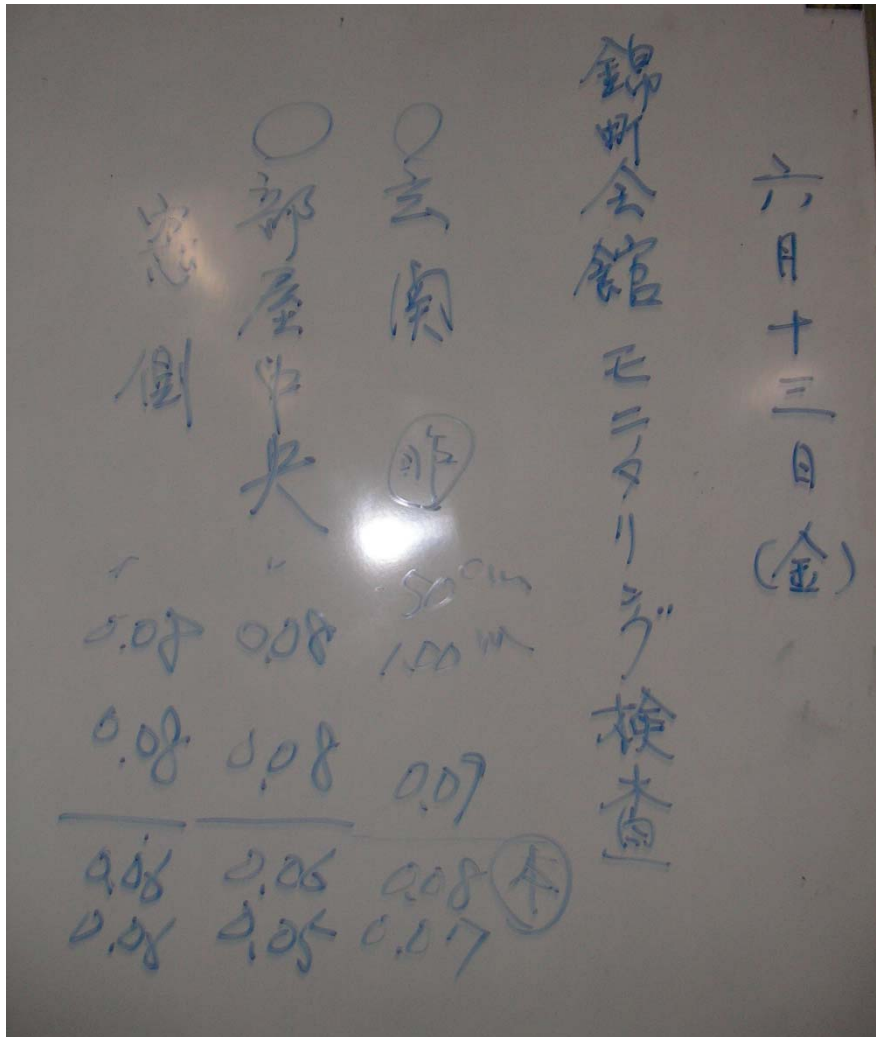 六月十三日(金)
錦町会館 モニタリング 検査
○玄関 昨 50cm 1.00m 0.09
本 0.08 0.07
○部屋中央 〃 0.08 0.08 0.06 0.05
窓側 〃 0.08 0.08 0.06 0.06